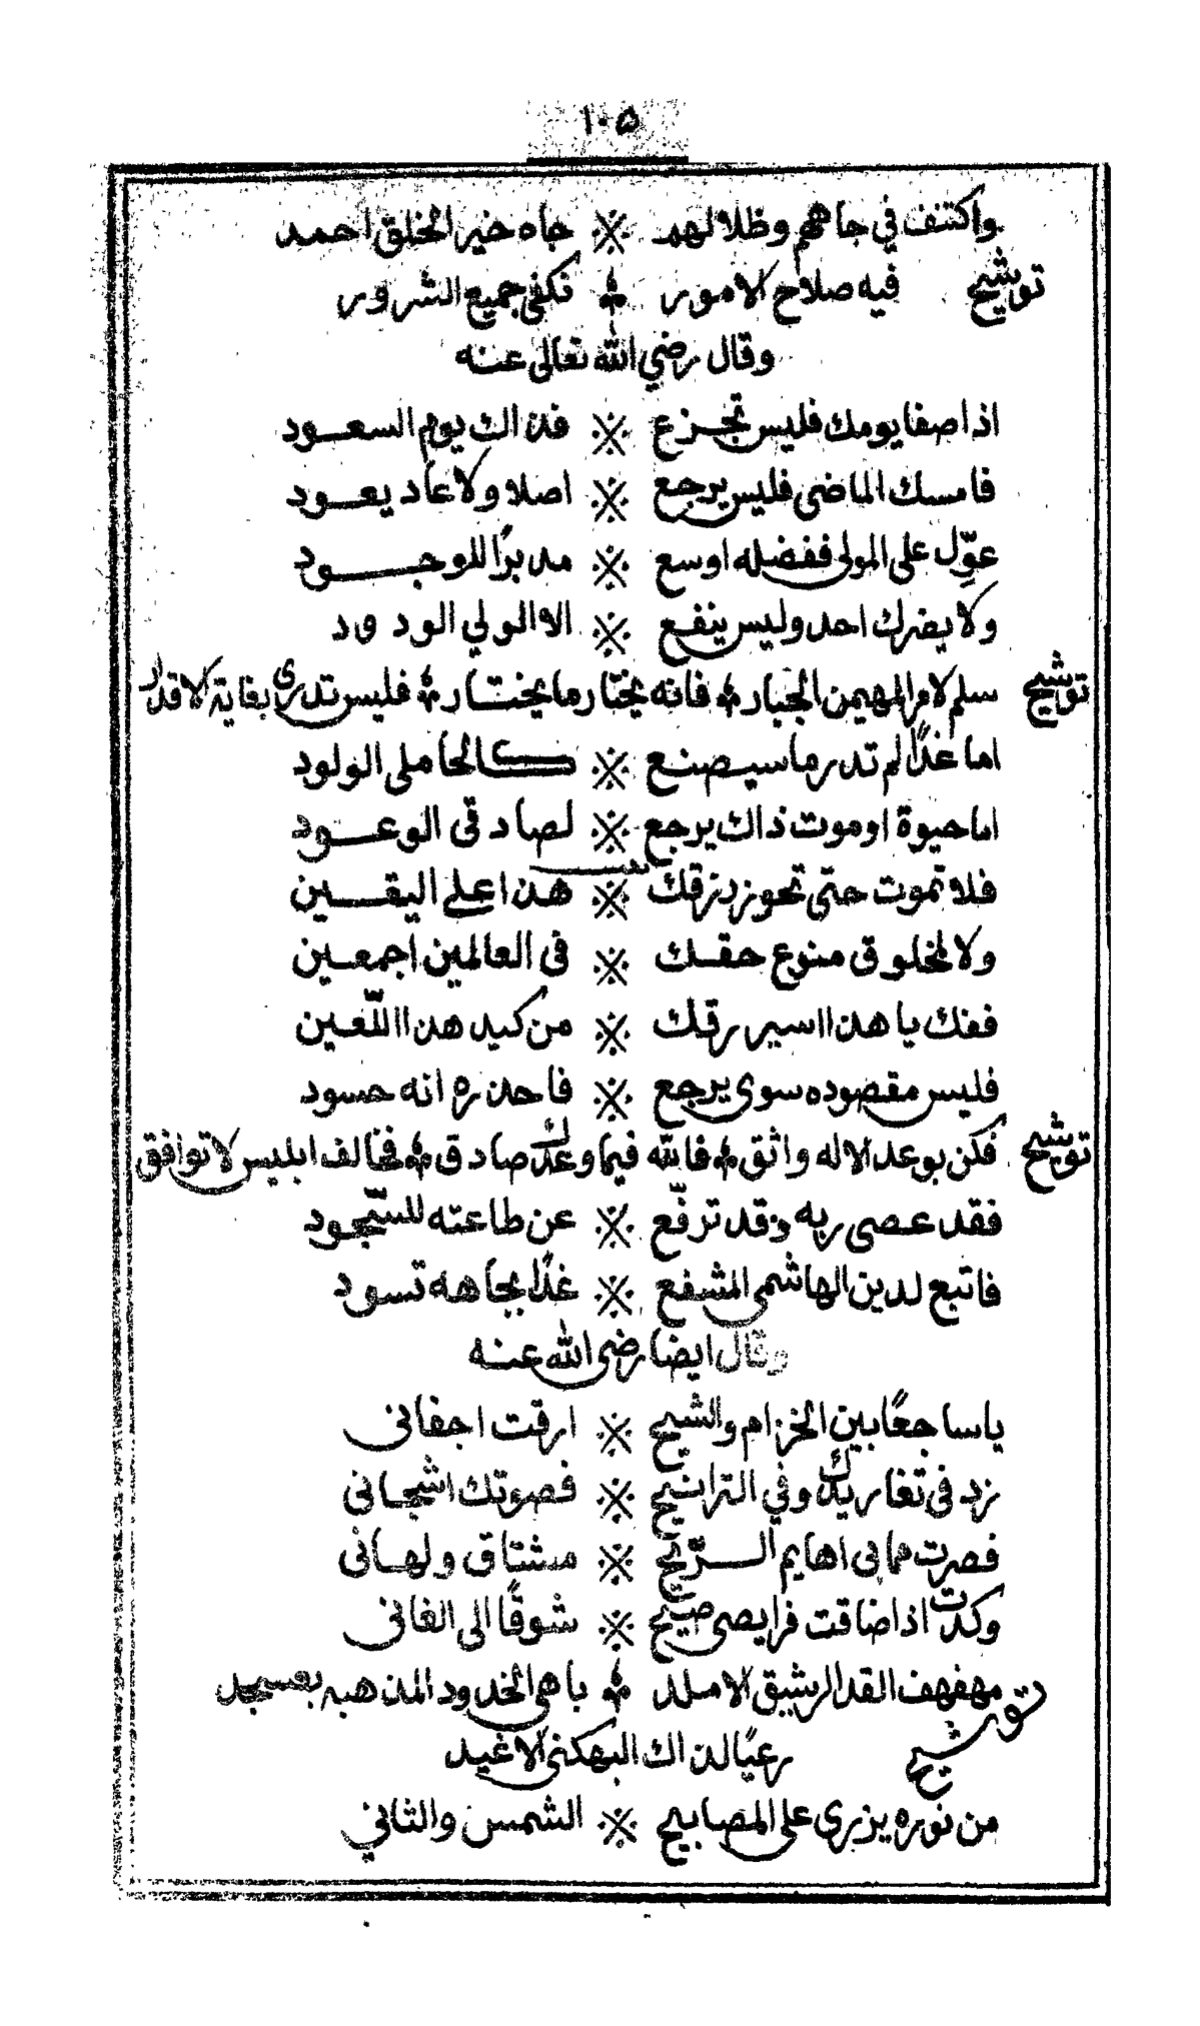 ١٠٥
واكتنف في جاههم وظلالهم ※ جاه خير الخلق احمد
توشيح فيه صلاح الامور ؞ تكفى جميع الشرور
وقال رضي الله تعالى عنه
اذا صفا يومك فليس تجزع ※ فذاك يوم السعود
فامسك الماضى فليس يرجع ※ اصلا ولا عاد يعود
عوّل على المولى ففضله اوسع ※ مدبرًا للوجود
ولا يضرك احد وليس ينفع ※ الا الولي الودود
توشيح سلم لامر المهيمن الجبار ؞ فانه يختار ما يختار ؞ فليس تدرى بغاية الاقدار
اما غدًا لم تدر ما سيصنع ※ كالحاملى الولود
اما حيوة او موت ذاك يرجع ※ لصادق الوعود
فلا تموت حتى تحوز رزقك ※ هذا على اليقين
ولا لمخلوق منوع حقك ※ في العالمين اجمعين
ففك يا هذا اسير رقك ※ من كيد هذا اللّعين
فليس مقصوده سوى يرجع ※ فاحذره انه حسود
توشيح فكن بوعد الاله واثق ؞ فالله فيما وعدك صادق ؞ فخالف ابليس لا توافق
فقد عصى ربه وقد ترفّع ※ عن طاعته للسّجود
فاتبع لدين الهاشمى المشفع ※ غدًا بجاهه تسود
وقال ايضا رضى الله عنه
يا ساجعًا بين الخزام والشيح ※ ارقت اجفانى
زد فى تغاريدك وفي التراشيح ※ فصوتك اشجانى
فصرت مما بى اهايم الرّيح ※ مشتاق ولهانى
وكدت اذا ضاقت فرايصى صيح ※ شوقًا الى الغانى
توشيح مهفهف القد الرشيق الاملد ؞ باهى الخدود المذهبه بعسجد
رعيًا لذاك البهكنى الاغيد
من نوره يزرى على المصابيح ※ الشمس والثاني